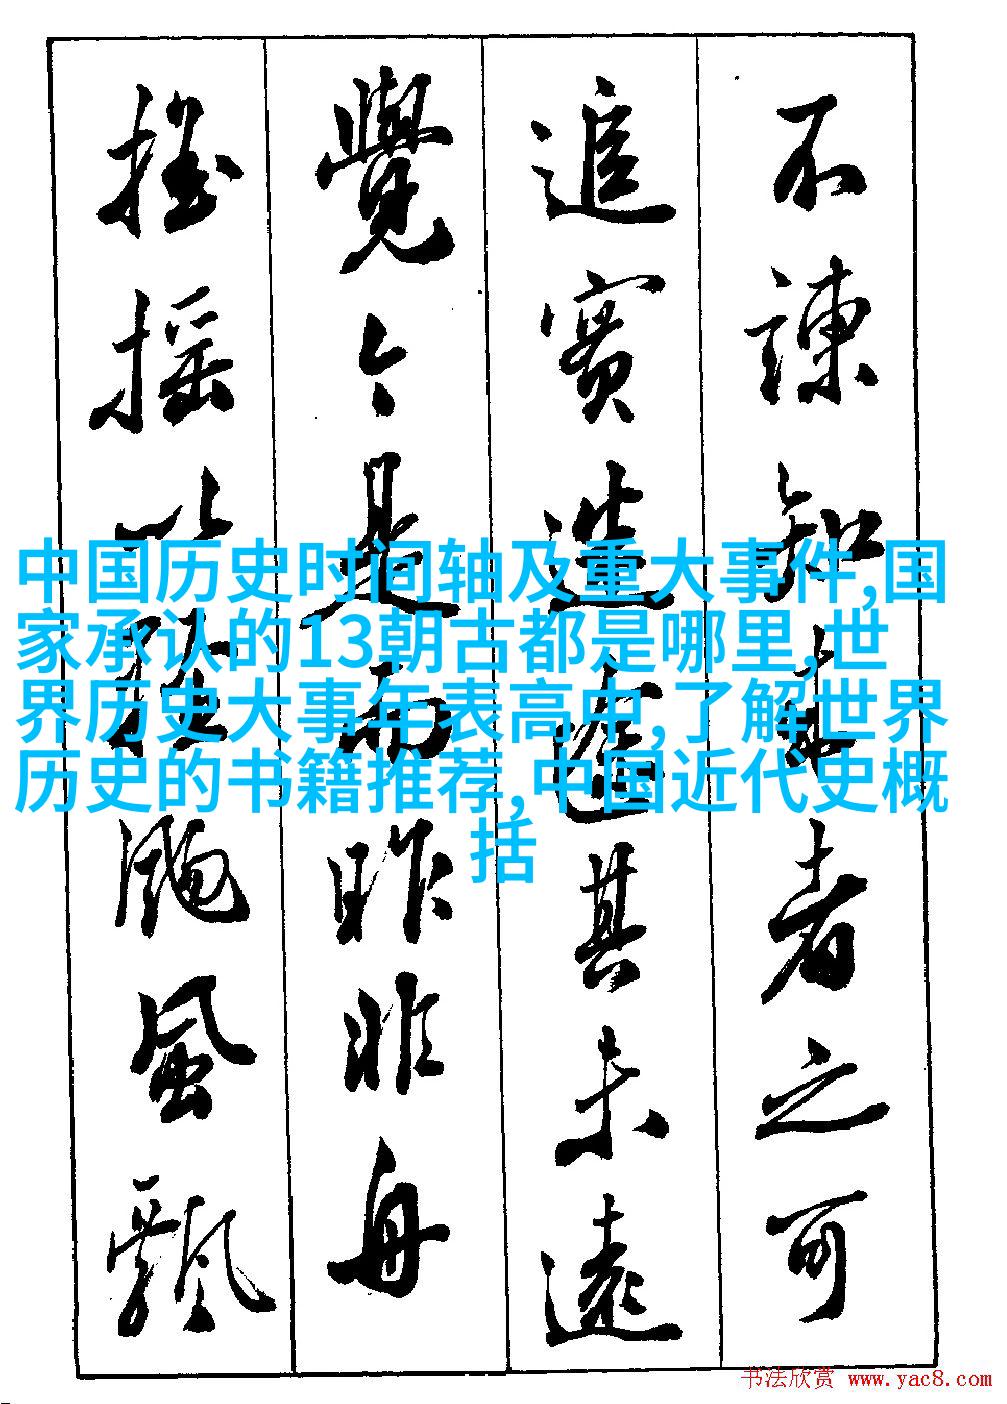 不諫知来者之可
追實迷途其未遠
覺今是而昨非舟
摇摇以輕颺風飄
中国历史时间轴及重大事件,国
家承认的13朝古都是哪里,世
界历史大事年表高中,了解世界
历史的书籍推荐,中国近代史概
括
书法欣赏 www.yac8.com